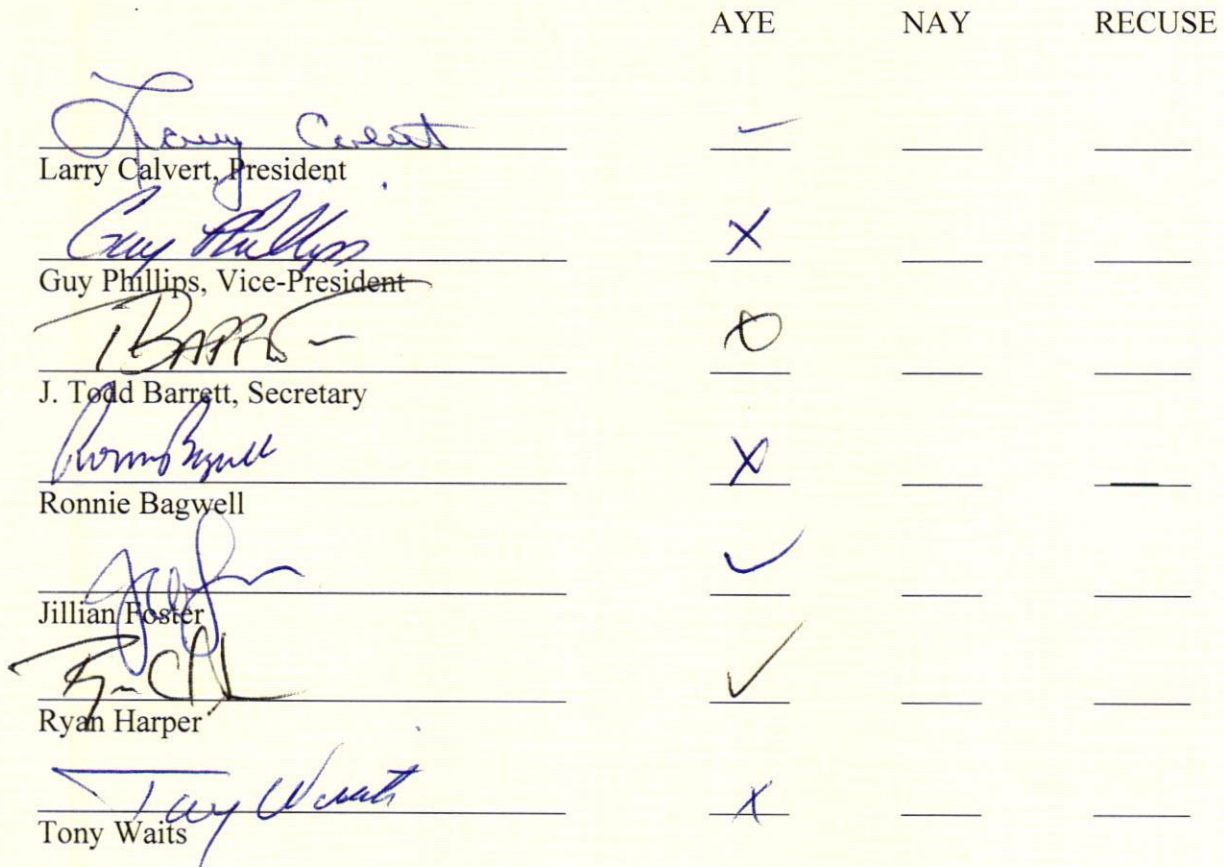 AYE NAY RECUSE
Larry Calvert
Larry Calvert, President
Guy Phillips
Guy Phillips, Vice-President
J. Todd Barrett, Secretary
Ronnie Bagwell
Jillian Foster
Ryan Harper
Tony Waits
Tony Waits